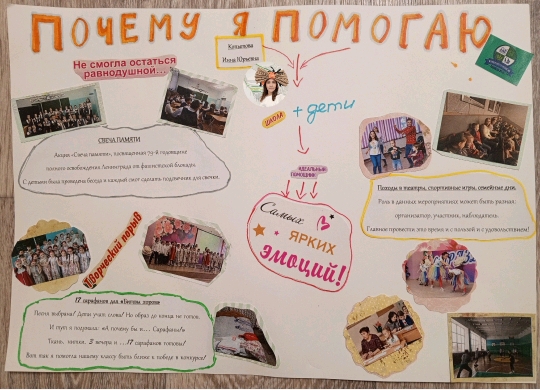 ПОЧЕМУ Я ПОМОГАЮ
Не смогла остаться
равнодушной...
Инна Юрьевна
ШКОЛА
+ дети
СВЕЧА ПАМЯТИ
Акция «Свеча памяти», посвященная 79-й годовщине
полного освобождения Ленинграда от фашистской блокады.
С детьми была проведена беседа и каждый смог сделать подсвечник для свечки.
ИДЕАЛЬНЫЙ
ПОМОЩНИК
Самых
ЯРКИХ
ЭМОЦИЙ!
Походы в театры, спортивные игры, семейные дни.
Роль в данных мероприятиях может быть разная:
организатор, участник, наблюдатель.
Главное провести это время и с пользой и с удовольствием!
Творческий порыв
17 сарафанов для
Песня выбрана! Дети учат слова! Но образ до конца не готов.
И тут я подумала: «А почему бы и... Сарафаны!»
Ткань, нитки, 3 вечера и ... 17 сарафанов готовы!
Вот так я помогла нашему классу быть ближе к победе в конкурсе!